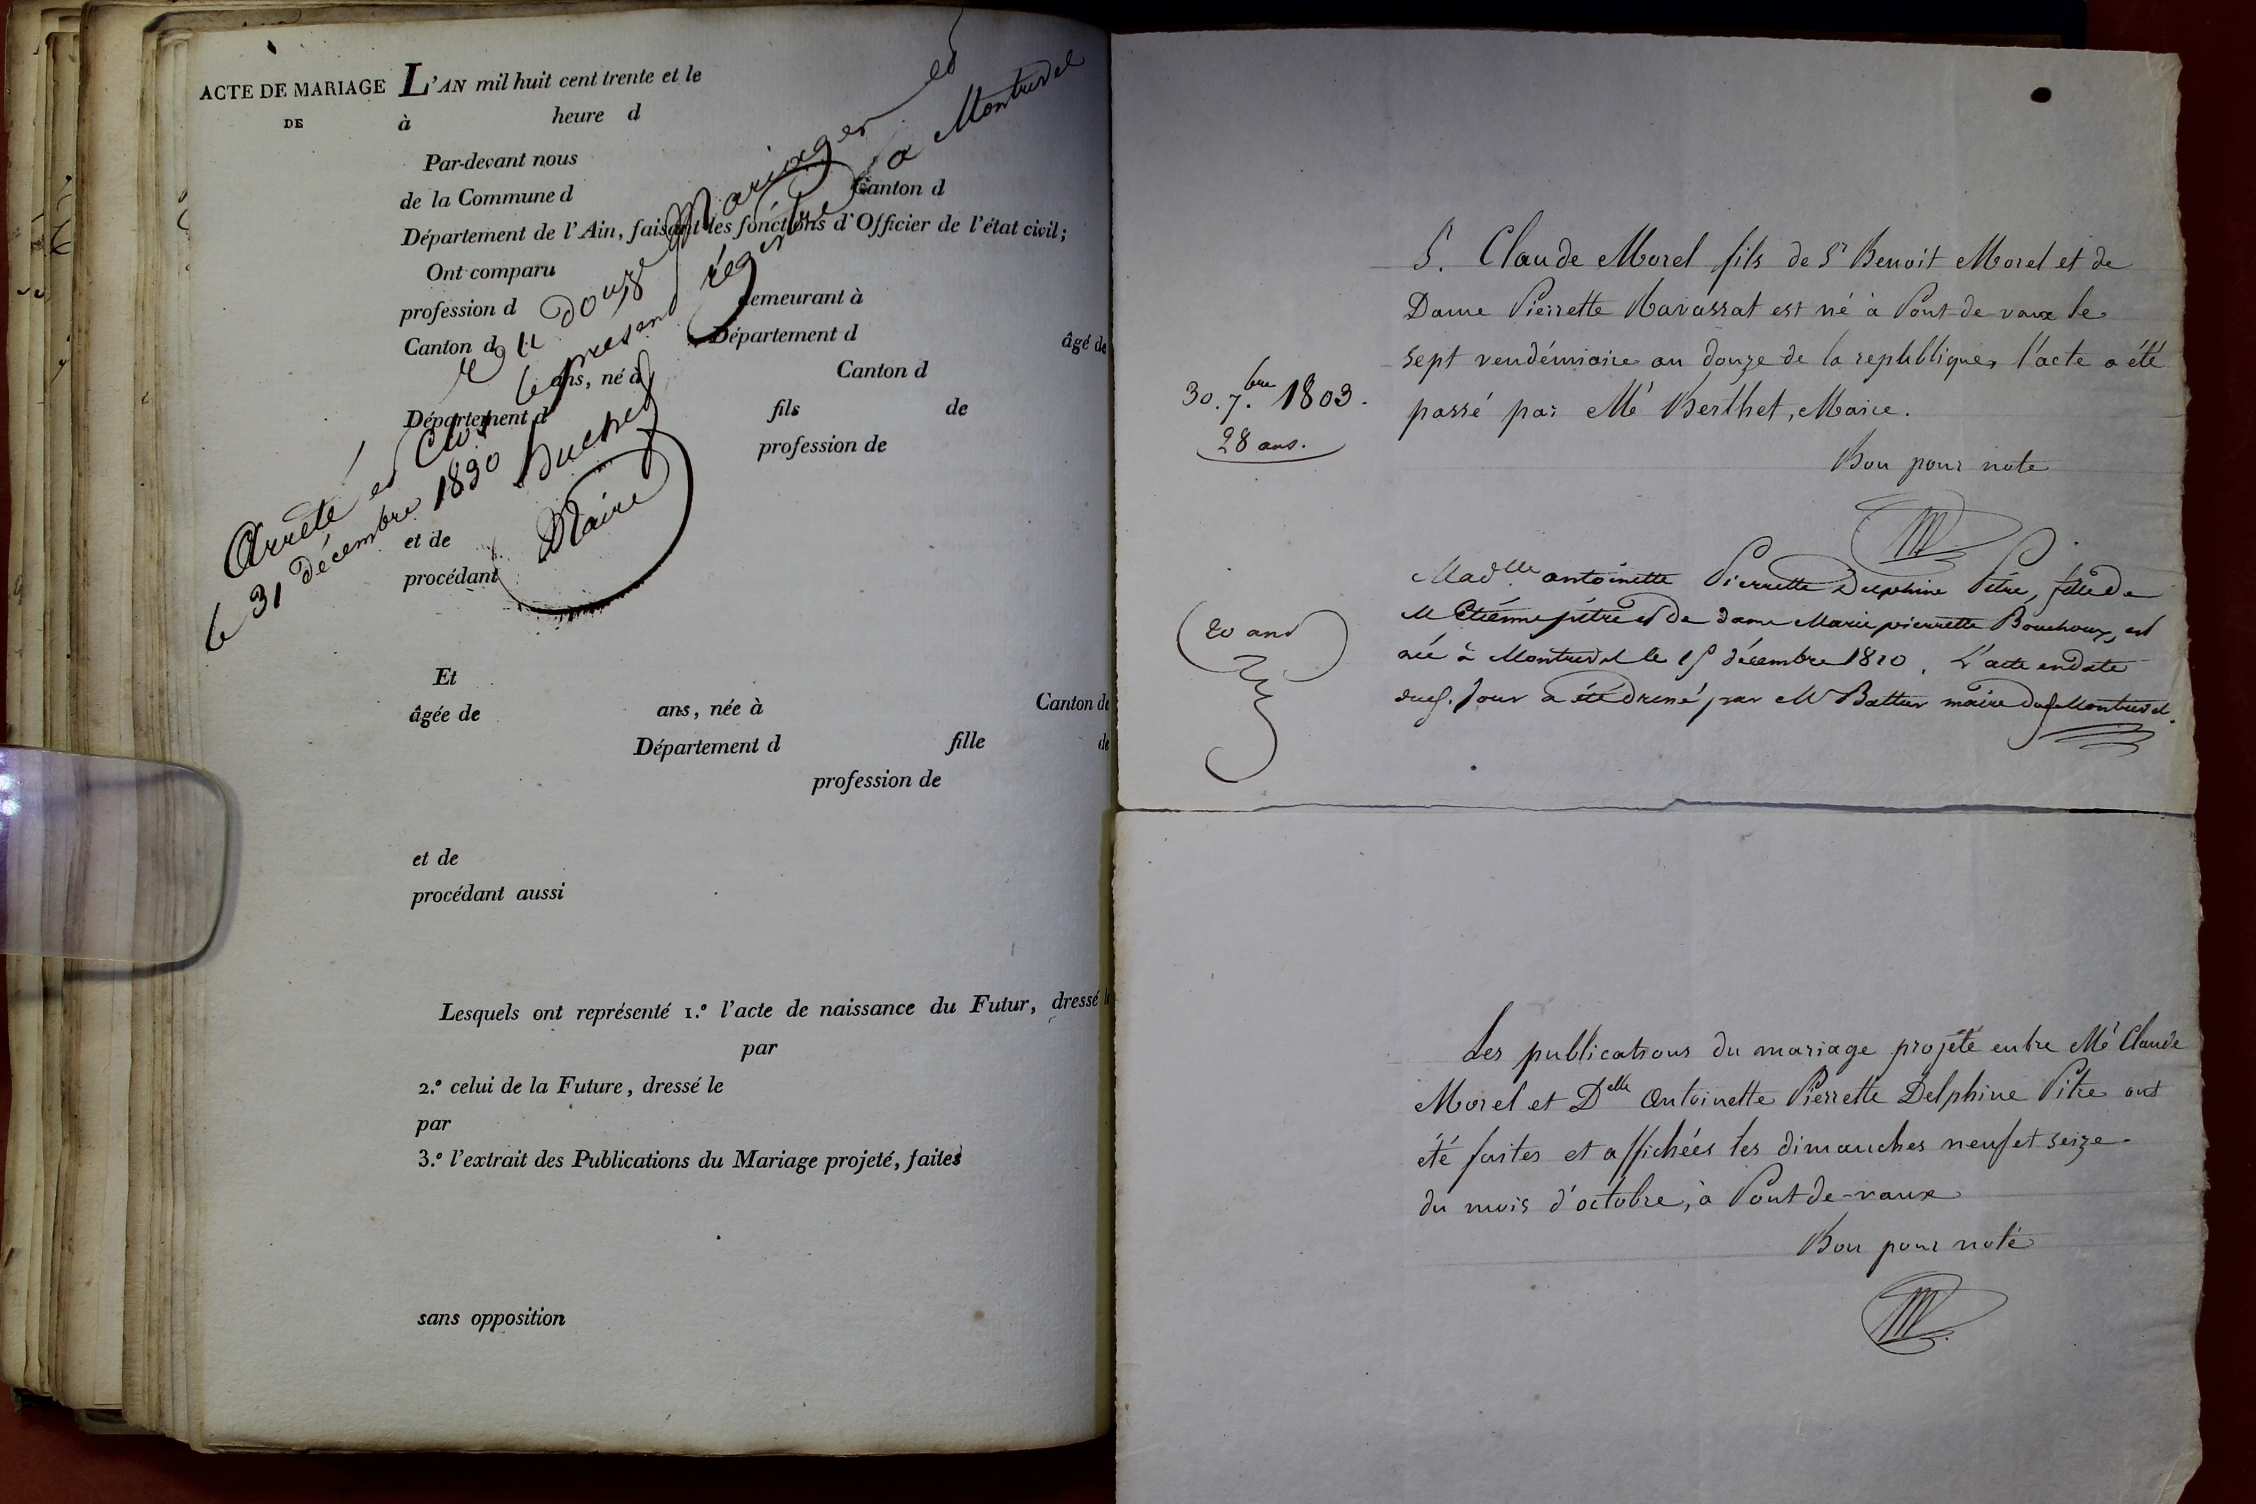 ACTE DE MARIAGE
DE
L'AN mil huit cent trente et le
à heure d
Par-devant nous
de la Commune d Canton d
Département de l'Ain, faisant les fonctions d'Officier de l'état civil;
Ont comparu
profession d demeurant à
Canton d Département d âgé de
ans, né à Canton d
Département d fils de
profession de
et de
procédant
Et
âgée de ans, née à Canton de
Département d fille de
profession de
et de
procédant aussi
Lesquels ont représenté 1.º l'acte de naissance du Futur, dressé l
par
2.º celui de la Future, dressé le
par
3.º l'extrait des Publications du Mariage projeté, faites
sans opposition
Arrêté et Clos à douze Mariages et
le présent régistre à Montrevel
le 31 décembre 1830
Maire
S. Claude Morel fils de Sr Benoit Morel et de
Dame Pierrette Ravassat est né à Pont-de-vaux le
sept vendémiaire an douze de la republique, l'acte a été
passé par Mr Berthet, Maire.
Bon pour note
30. 7.bre 1803.
28 ans.
Madlle antoinette Pierrette Delphine Pitre, fille de
M Etienne pitre et de dame Marie pierrette Bouchoux, est
née à Montrevel le 15 décembre 1810. L'acte en date
dud. Jour a été dressé par Mr Battur maire dud Montrevel.
20 ans
Les publications du mariage projeté entre Mr Claude
Morel et Delle Antoinette Pierrette Delphine Pitre ont
été faites et affichées les dimanches neuf et seize
du mois d'octobre, à Pont-de-vaux
Bon pour note